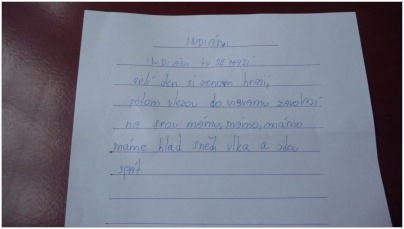 INDIÁNI
INDIÁNI tu SE
celí den si hrají,
potom vlezou do vigvamu zavolají
na svou mámu, mámo, mámo
máme hlad snědí vlka a jdou
spát